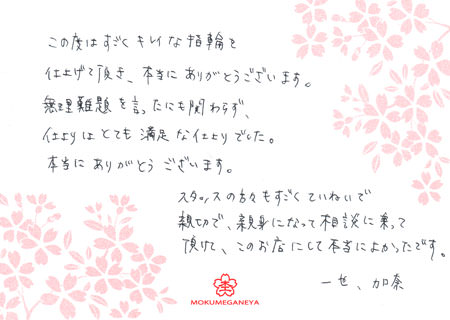 この度はすごくキレイな指輪を
仕上げて頂き、本当にありがとうございます。
無理難題を言ったにも関わらず、
仕上りはとても満足な仕上りでした。
本当にありがとうございます。
スタッフの方々もすごくていねいで
親切で、親身になって相談に乗って
頂けて、このお店にして本当によかったです。
一世、加奈
MOKUMEGANEYA